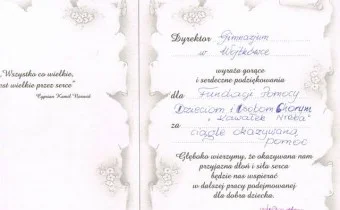 „Wszystko co wielkie,
jest wielkie przez serce"
Cyprian Kamil Norwid
Dyrektor Gimnazjum
w
wyraża gorące
i serdeczne podziękowania
dla Fundacji Pomocy
Dzieciom i Osobom Chorym
„Kawałek Nieba"
za ciągle okazywaną
pomoc
Głęboko wierzymy, że okazywana nam
przyjazna dłoń i siła serca
będzie nas wspierać
w dalszej pracy podejmowanej
dla dobra dziecka.